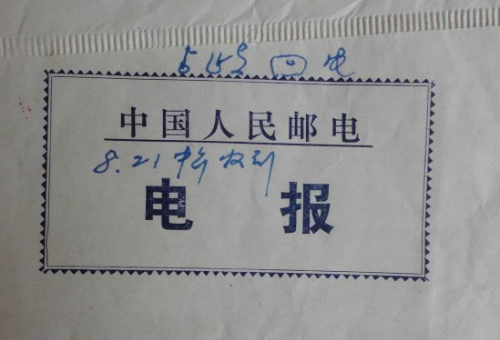 回电
中国人民邮电
8.21 收到
电报